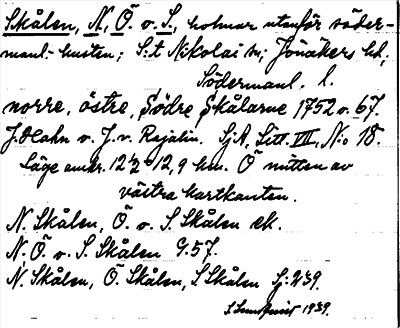 Skålen, N., Ö. o. S., holmar utanför söder-
manl. kusten; S:t Nikolai sn, Jönåkers hd,
Södermanl. l.
norre, östre, Södre Skålarne 1752 o. 67.
J. Hahn o. J. v. Rajalin. SjA, Litt. VII, No 18.
Läge omkr. 12½ - 12,9 km. Ö mitten av
västra kartkanten.
N. Skålen, Ö. o. S. Skålen ek.
N. Ö. o. S. Skålen G:57.
N. Skålen, Ö. Skålen, S Skålen Sj:239.
1939.